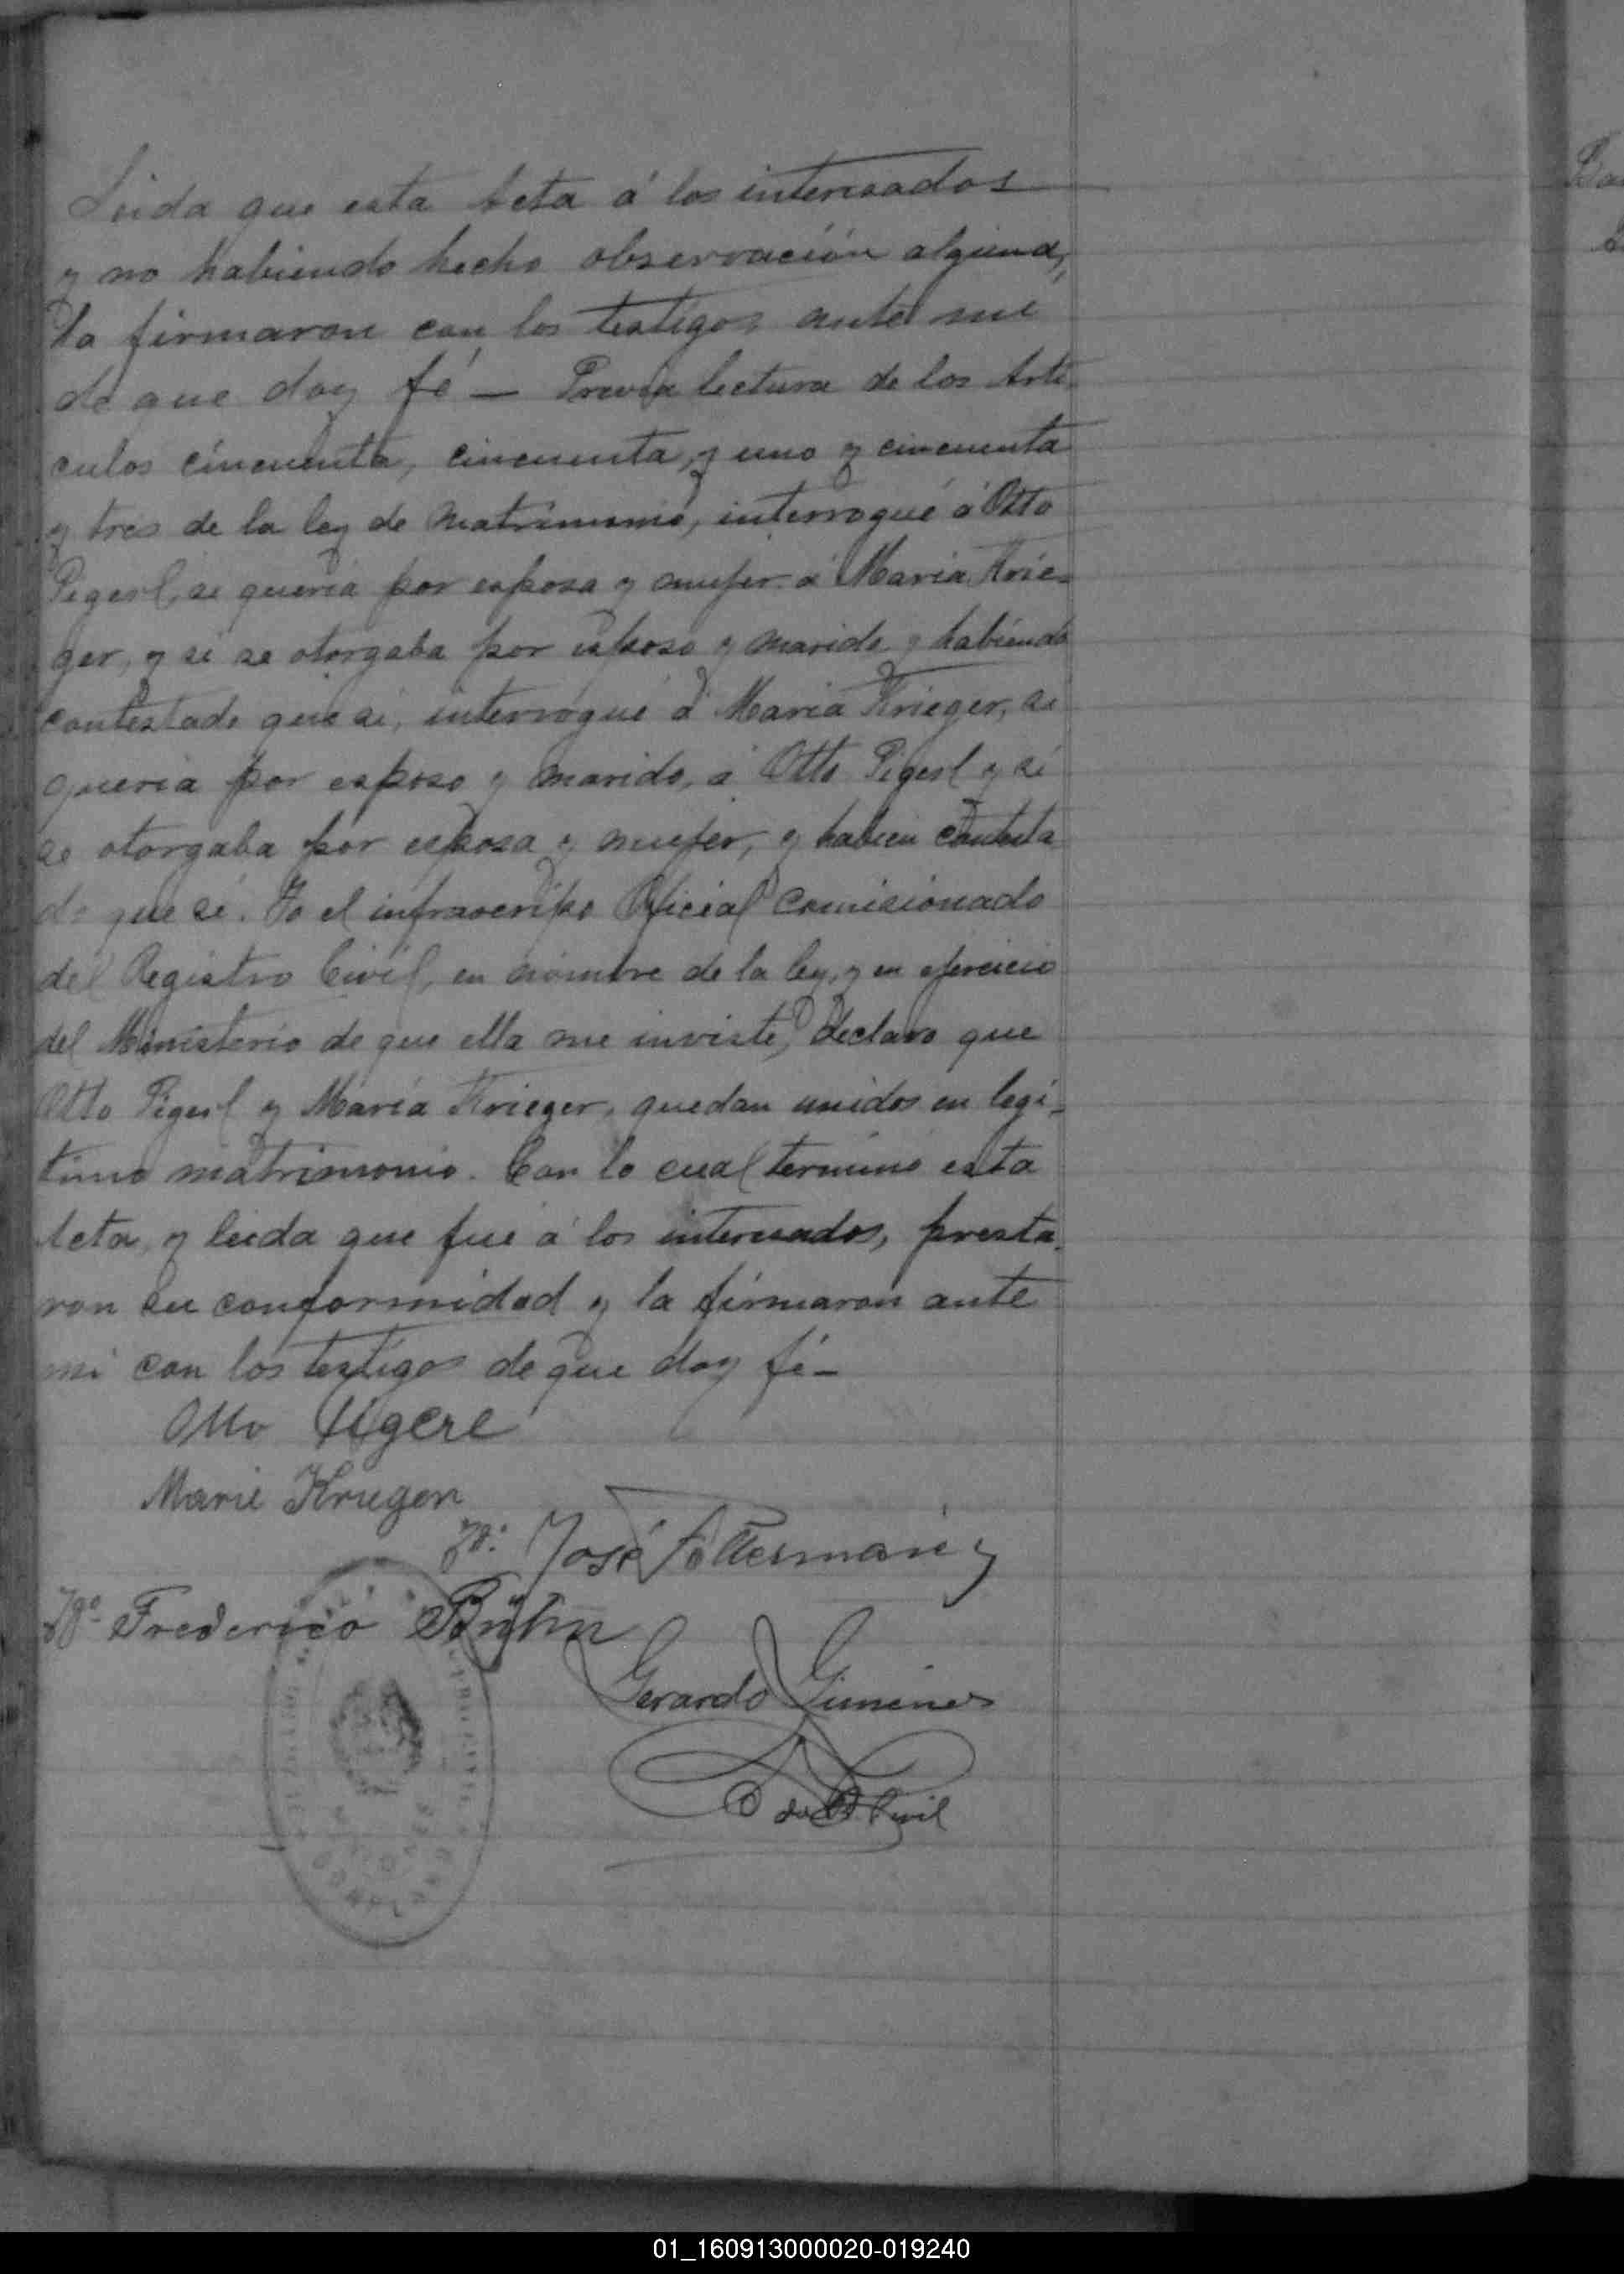 Leida que esta Acta á los interesados
y no habiendo hecho observación alguna,
la firmaron con los testigos ante mi
de que doy fé — Previa lectura de los Arti-
culos cincuenta, cincuenta y uno y cincuenta
y tres de la ley de Matrimonio, interrogué á Otto
Pigerl, si queria por esposa y mujer á Maria Krie-
ger, y si se otorgaba por esposo y marido y habiendo
contestado que si, interrogué á Maria Krieger, si
queria por esposo y marido, á Otto Pigerl y si
se otorgaba por esposa y mujer, y habien contesta
do que sí. Yo el infrascripto Oficial Comisionado
del Registro Civil, en nombre de la ley, y en ejercicio
del Ministerio de que ella me inviste, declaro que
Otto Pigerl y María Krieger, quedan unidos en legi-
timo matrimonio. Con lo cual terminó esta
Acta, y leida que fué á los interesados, presta-
ron su conformidad y la firmaron ante
mi con los testigos de que doy fé—
Otto Pigerl
Marie Krieger
Tgo. José
Tgo. Frederico
Gerardo Gimenes
O del R Civil
Ba
01_160913000020-019240